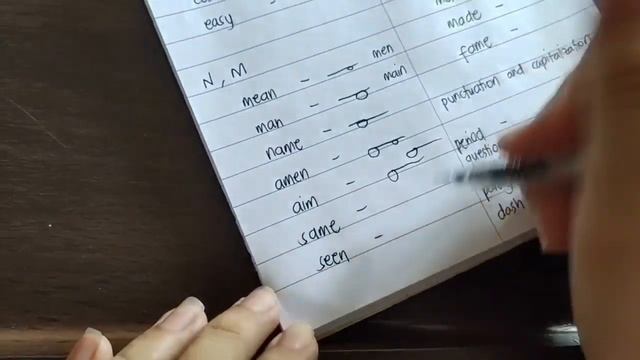 easy -
N, M
mean - men
man - main
name -
amen -
aim -
same -
seen -
made -
fame -
punctuation and capitalization
period -
dash